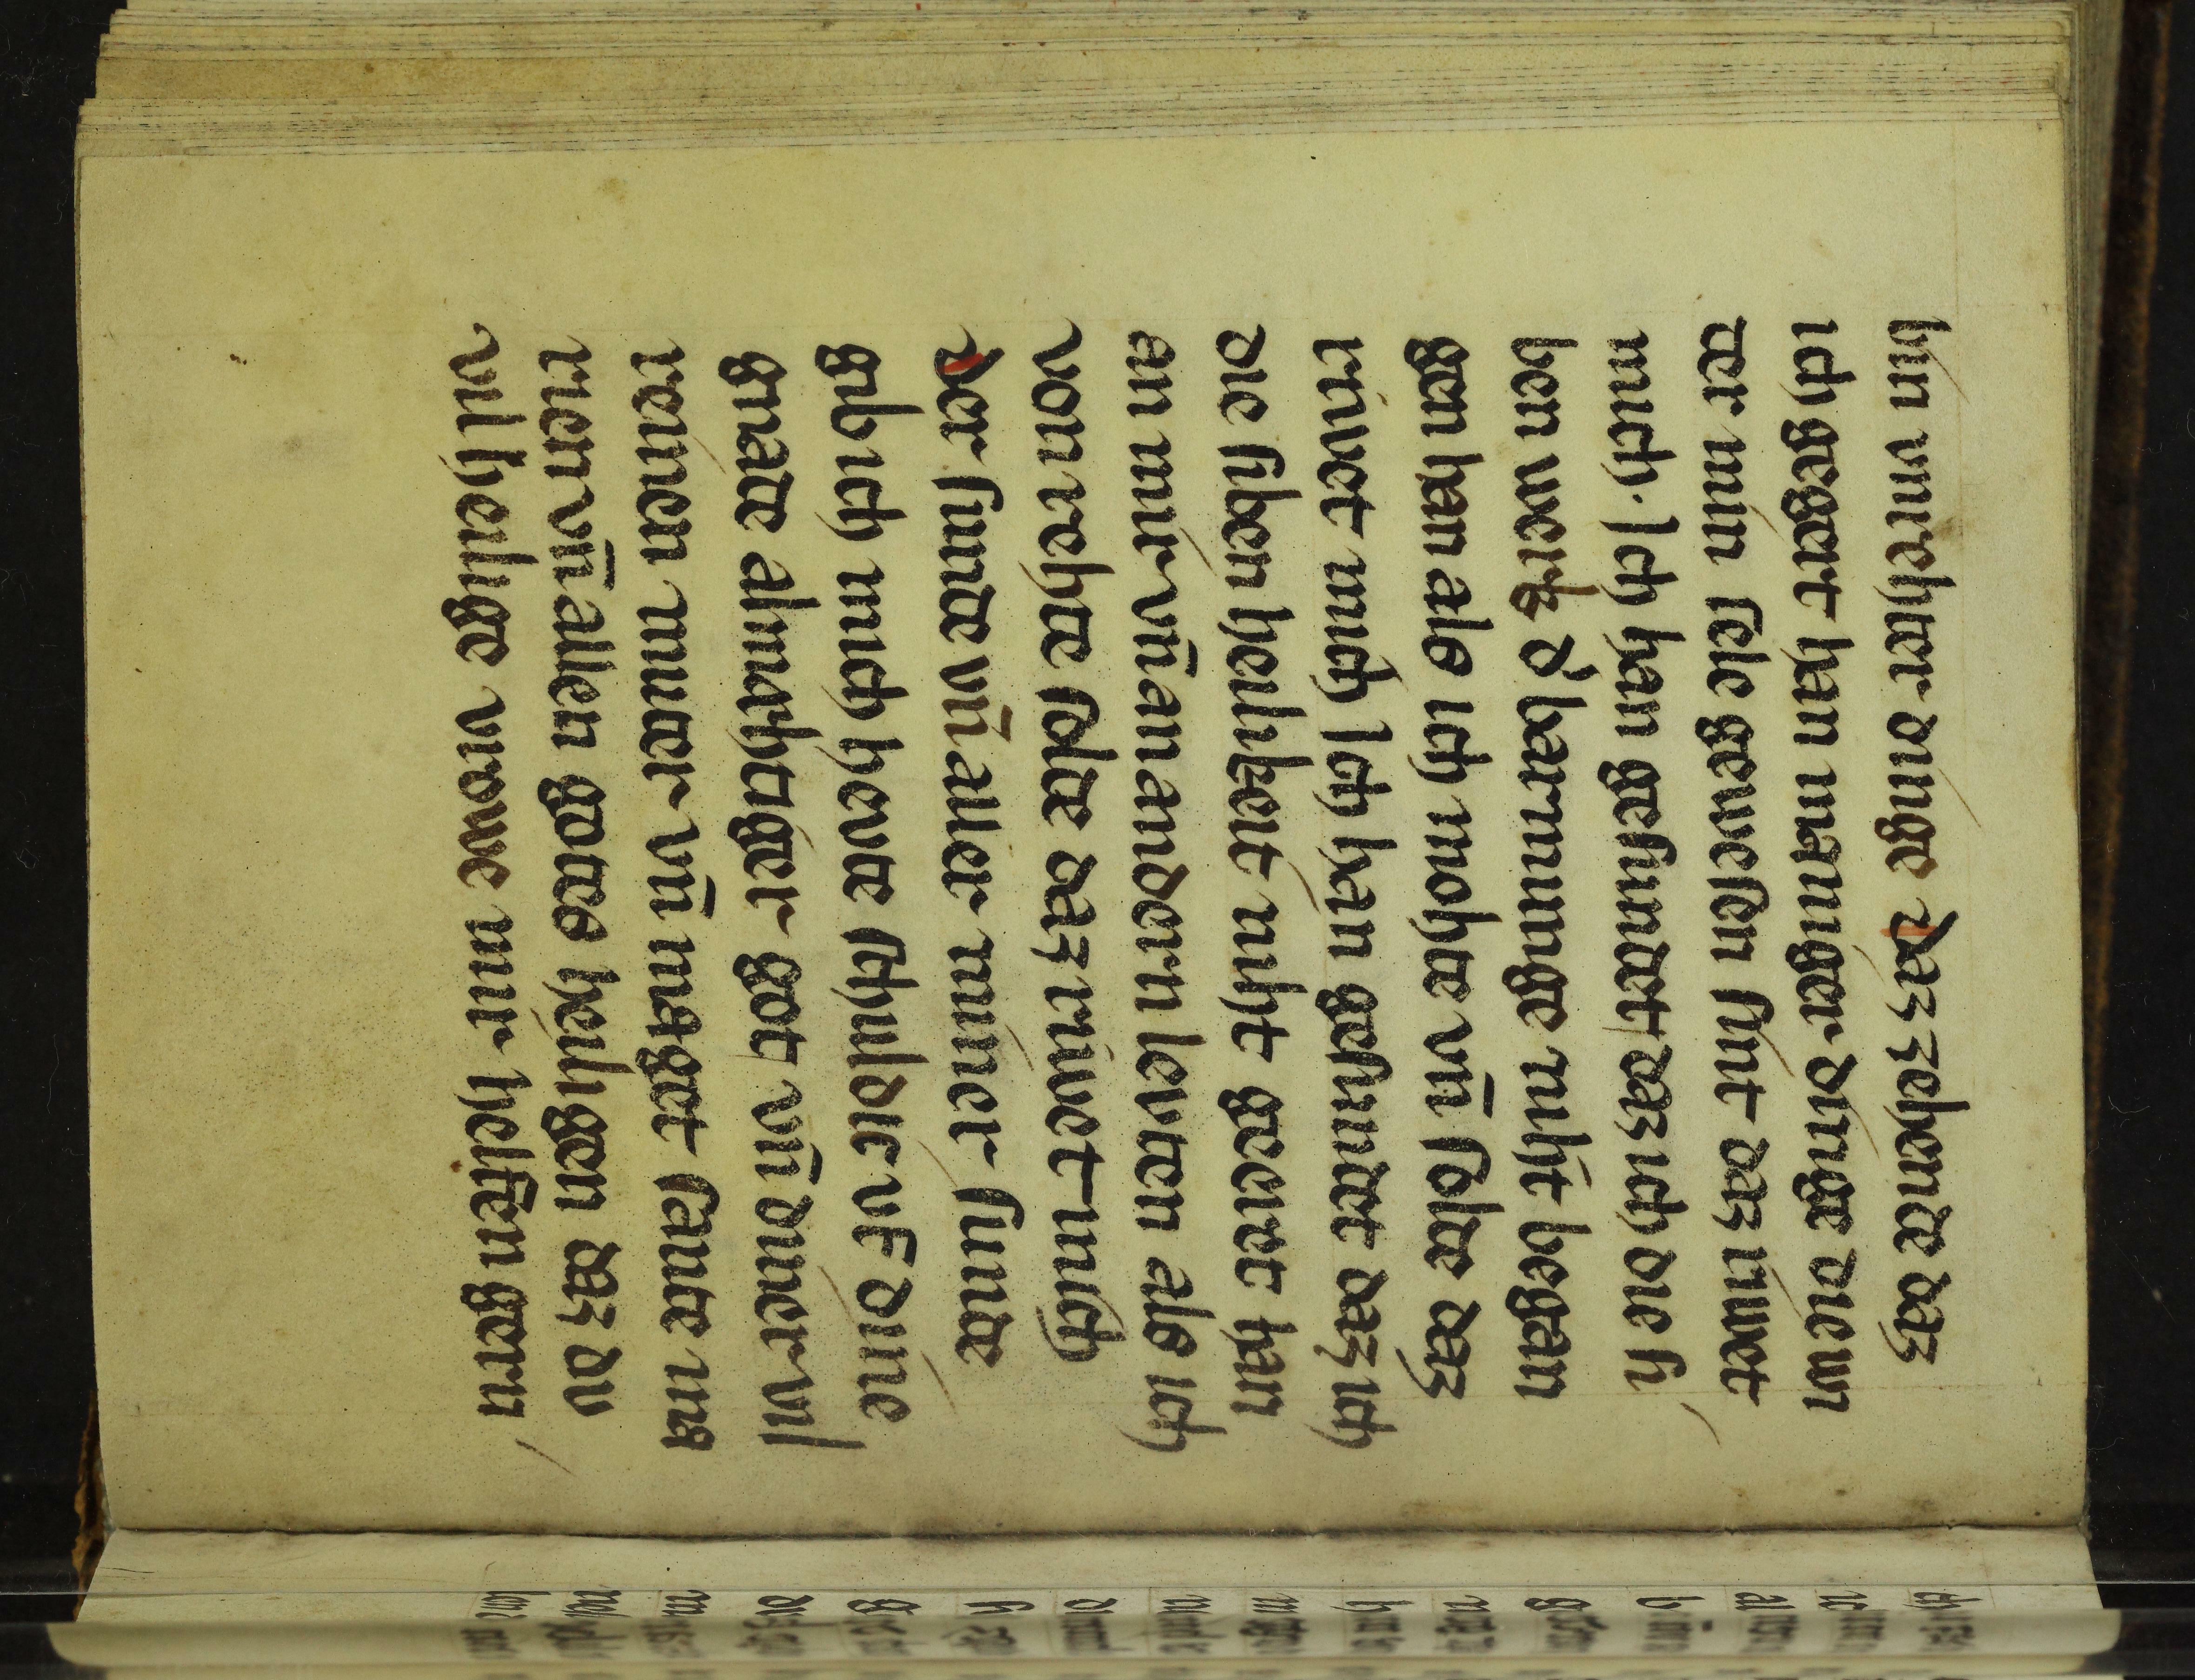 bin vnrehter dinge Daz zehende daz
ich gegert han maniger dinge die wi
der min sele gewesen sint daz riwet
mich. Ich han gesundet daz ich die si
ben werk d' barmunge niht began
gen han als ich mohte vn̄ solte daz
riwet mich Ich han gesundet daz ich
die siben heilikeit niht geeret han
an mir vn̄ an andern levten als ich
von rehte solte daz riwet mich
Der sunde vn̄ aller miner sunde
gib ich mich hevte schuldic vf dine
gnade almehtiger got vn̄ diner vil
reinen muter vn̄ maget sante ma
rien vn̄ allen gotes heiligen daz du
vil heilige vrowe mir helffen gern